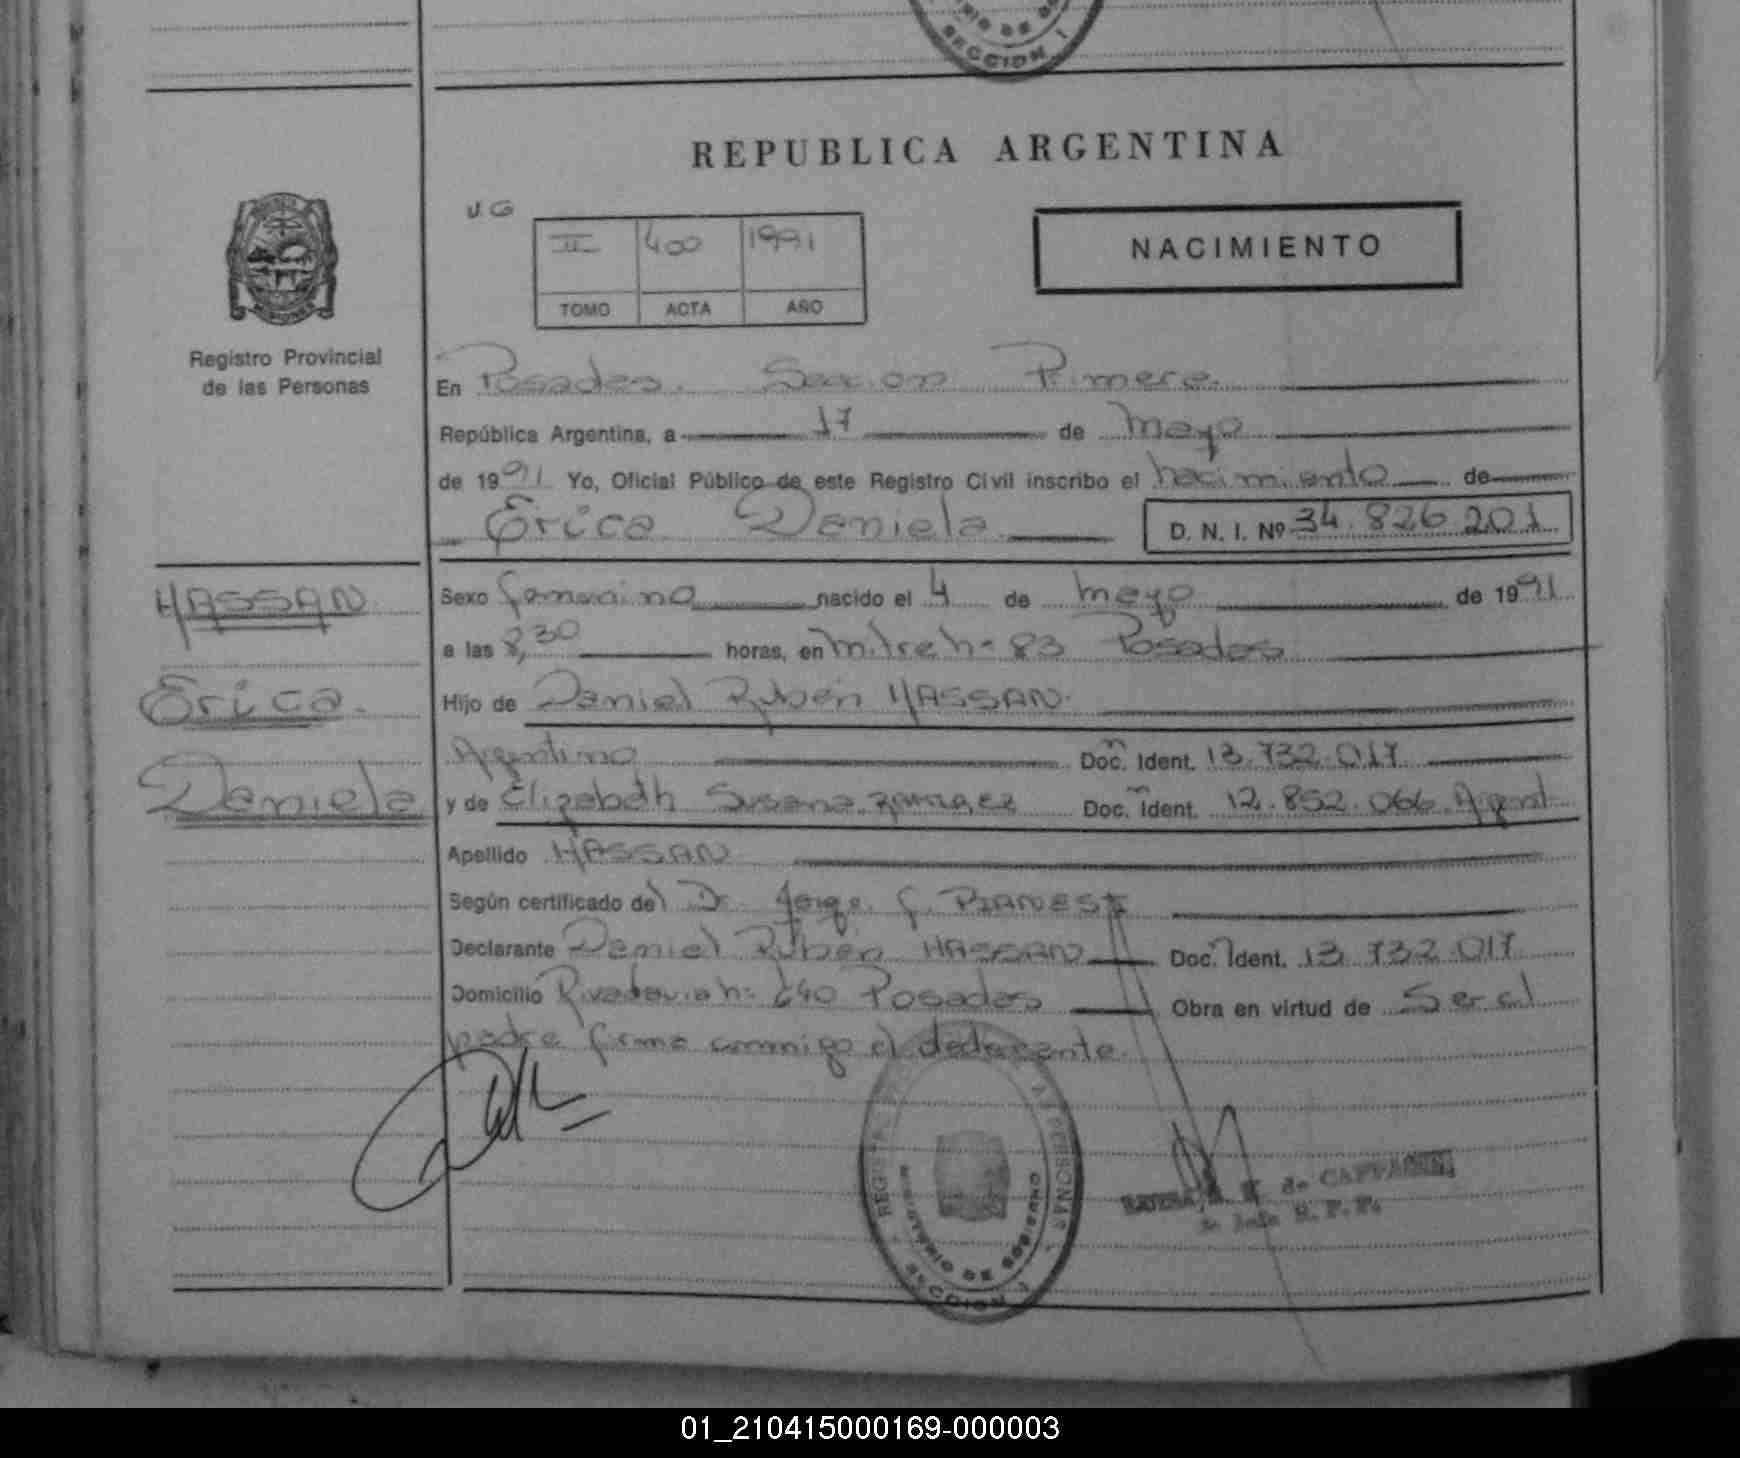 SECCION 1
REPUBLICA ARGENTINA
J.G
II 400 1991
TOMO ACTA AÑO
NACIMIENTO
Registro Provincial
de las Personas
En Posadas. Seccion Primera
República Argentina, a 17 de Mayo
de 1991 Yo, Oficial Público de este Registro Civil inscribo el nacimiento de
Erica Daniela D. N. I. Nº 34.826.201
HASSAN
Erica
Daniela
Sexo femenino nacido el 4 de mayo de 1991
a las 8,30 horas, en Mitre nº 83 Posadas
Hijo de Daniel Ruben HASSAN
Argentino Doc. Ident. 13.732.017
y de Elizabeth Susana Doc. Ident. 12.852.066 Argent
Apellido HASSAN
Según certificado del Dr. Jorge
Declarante Daniel Ruben HASSAN Doc. Ident. 13.732.017
Domicilio Rivadavia nº 640 Posadas Obra en virtud de Ser el
padre firma conmigo el declarante
MINISTERIO DE GOBIERNO
SECCION 1
01_210415000169-000003